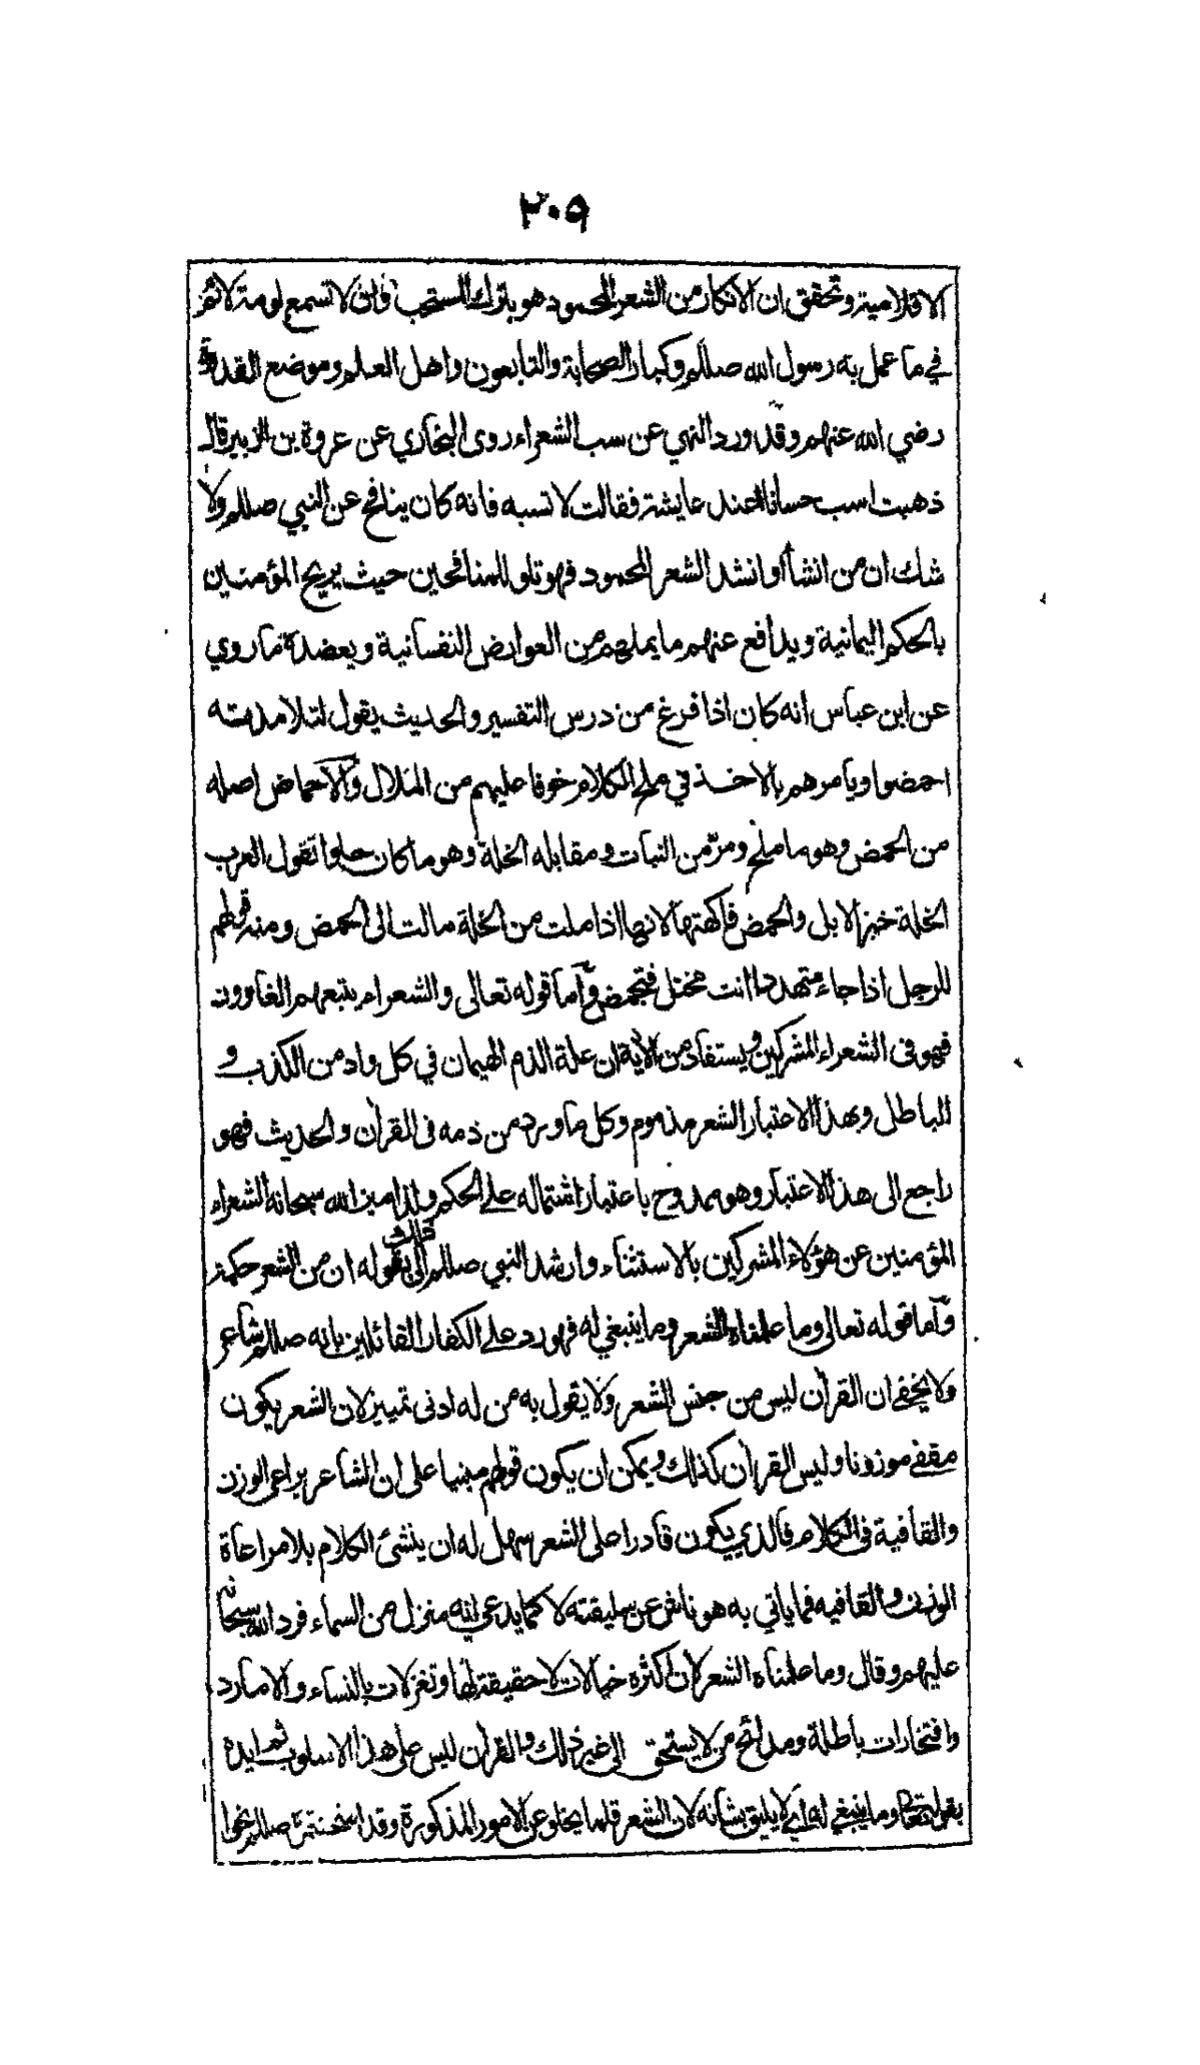 ٢٠٩
الاقلامية وتحقق ان الانكار من الشعر المحمود هو باترك المستحب فاذن لا تسمع لومة لائم
في ما عمل به رسول الله صللم وكبار الصحابة والتابعون واهل العلم وموضع القدوة
رضي الله عنهم وقد ورد النهي عن سب الشعراء روى البخاري عن عروة بن الزبير قال
ذهبت اسب حسانا عند عايشة فقالت لا تسبه فانه كان ينافح عن النبي صللم ولا
شك ان من انشأ او انشد الشعر المحمود فهو تلو المنافحين حيث يريح المؤمنين
بالحكم اليمانية ويدافع عنهم ما يملهم من العوارض النفسانية ويعضده ما روي
عن ابن عباس انه كان اذا فرغ من درس التفسير والحديث يقول لتلامذته
احمضوا ويامرهم بالاخذ في ملح الكلام خوفا عليهم من الملال والاحماض اصله
من الحمض وهو ما ملح ومر من النبات ومقابله الخلة وهو ما كان حلوا تقول العرب
الخلة خبز الابل والحمض فاكهتها لانها اذا ملت من الخلة مالت الى الحمض ومنه قولهم
للرجل اذا جاء متهددا انت مختل فتحمض وآما قوله تعالى والشعراء يتبعهم الغاوون
فهو فى الشعراء المشركين ويستفاد من الآية ان علة الذم الهيمان في كل واد من الكذب و
الباطل وبهذا الاعتبار الشعر مذموم وكل ما ورد من ذمه فى القرآن والحديث فهو
راجع الى هذا الاعتبار وهو ممدوح باعتبار اشتماله على الحكم ولذا ميز الله سبحانه الشعراء
المؤمنين عن هؤلاء المشركين بالاستثناء وارشد النبي صللم الى ذلك بقوله ان من الشعر حكمة
وآما قوله تعالى وما علمناه الشعر وما ينبغي له فهو رد على الكفار القائلين بانه صللم شاعر
ولا يخفى ان القرآن ليس من جنس الشعر ولا يقول به من له ادنى تمييز لان الشعر يكون
مقفى موزونا وليس القرآن كذلك ويمكن ان يكون قولهم مبنيا على ان الشاعر يراعى الوزن
والقافية فى الكلام فالذي يكون قادرا على الشعر سهل له ان ينشئ الكلام بلا مراعاة
الوزن والقافيه فما ياتي به هو ناش عن سليقته لا كما يدعي انه منزل من السماء فرد الله سبحانه
عليهم وقال وما علمناه الشعر لان اكثره خيالات لا حقيقة لها وتغزلات بالنساء والامارد
وافتخارات باطلة ومدائح من لا يستحق الى غير ذلك والقرآن ليس على هذا الاسلوب ثم ايده
بقوله وما ينبغي له اي لا يليق بشانه لان الشعر قلما يخلو عن الامور المذكورة وقد صللم نحوا